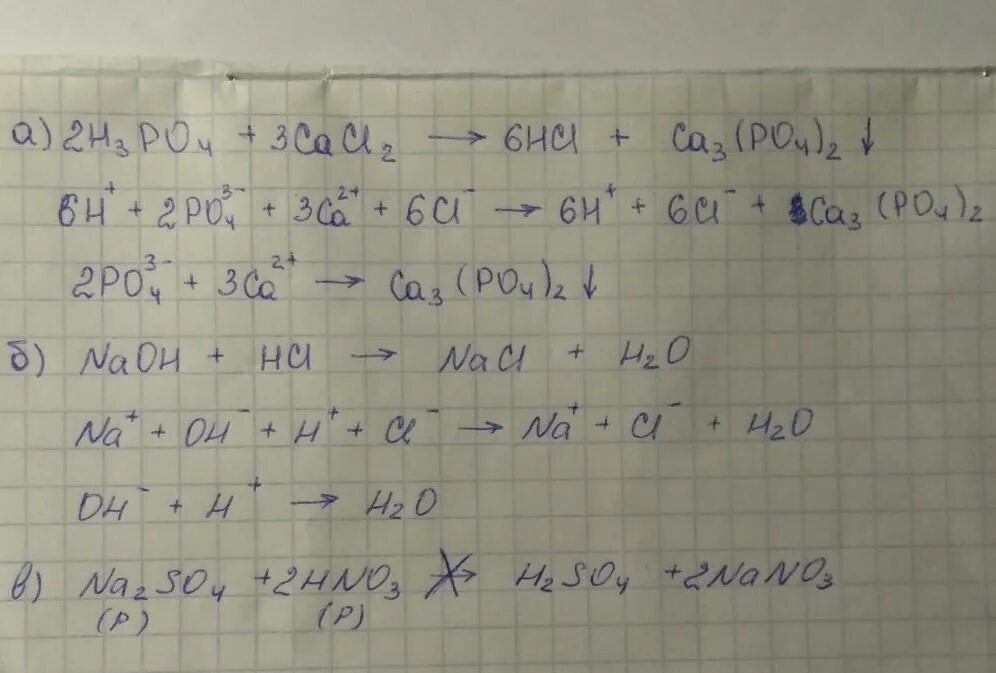 а) 2H₃PO₄ + 3CaCl₂ → 6HCl + Ca₃(PO₄)₂↓
6H⁺ + 2PO₄³⁻ + 3Ca²⁺ + 6Cl⁻ → 6H⁺ + 6Cl⁻ + Ca₃(PO₄)₂
2PO₄³⁻ + 3Ca²⁺ → Ca₃(PO₄)₂↓
б) NaOH + HCl → NaCl + H₂O
Na⁺ + OH⁻ + H⁺ + Cl⁻ → Na⁺ + Cl⁻ + H₂O
OH⁻ + H⁺ → H₂O
в) Na₂SO₄ + 2HNO₃ ↛ H₂SO₄ + 2NaNO₃
(р) (р)